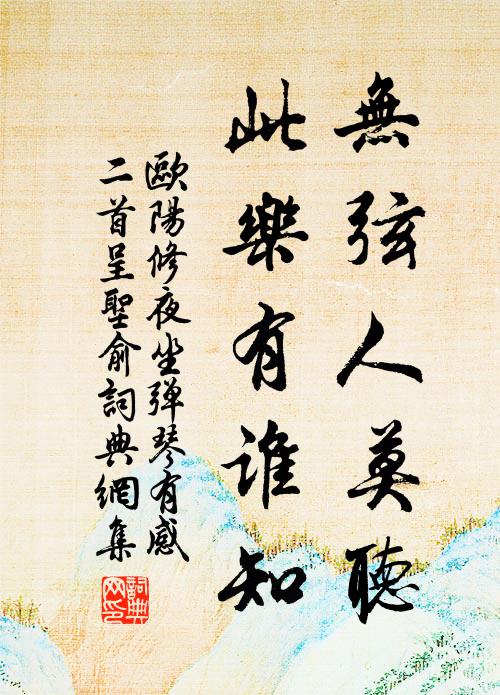 無弦人莫聽
此樂有誰知
歐陽修夜坐弹琴有感
二首呈聖俞詞典網集
詞典網印